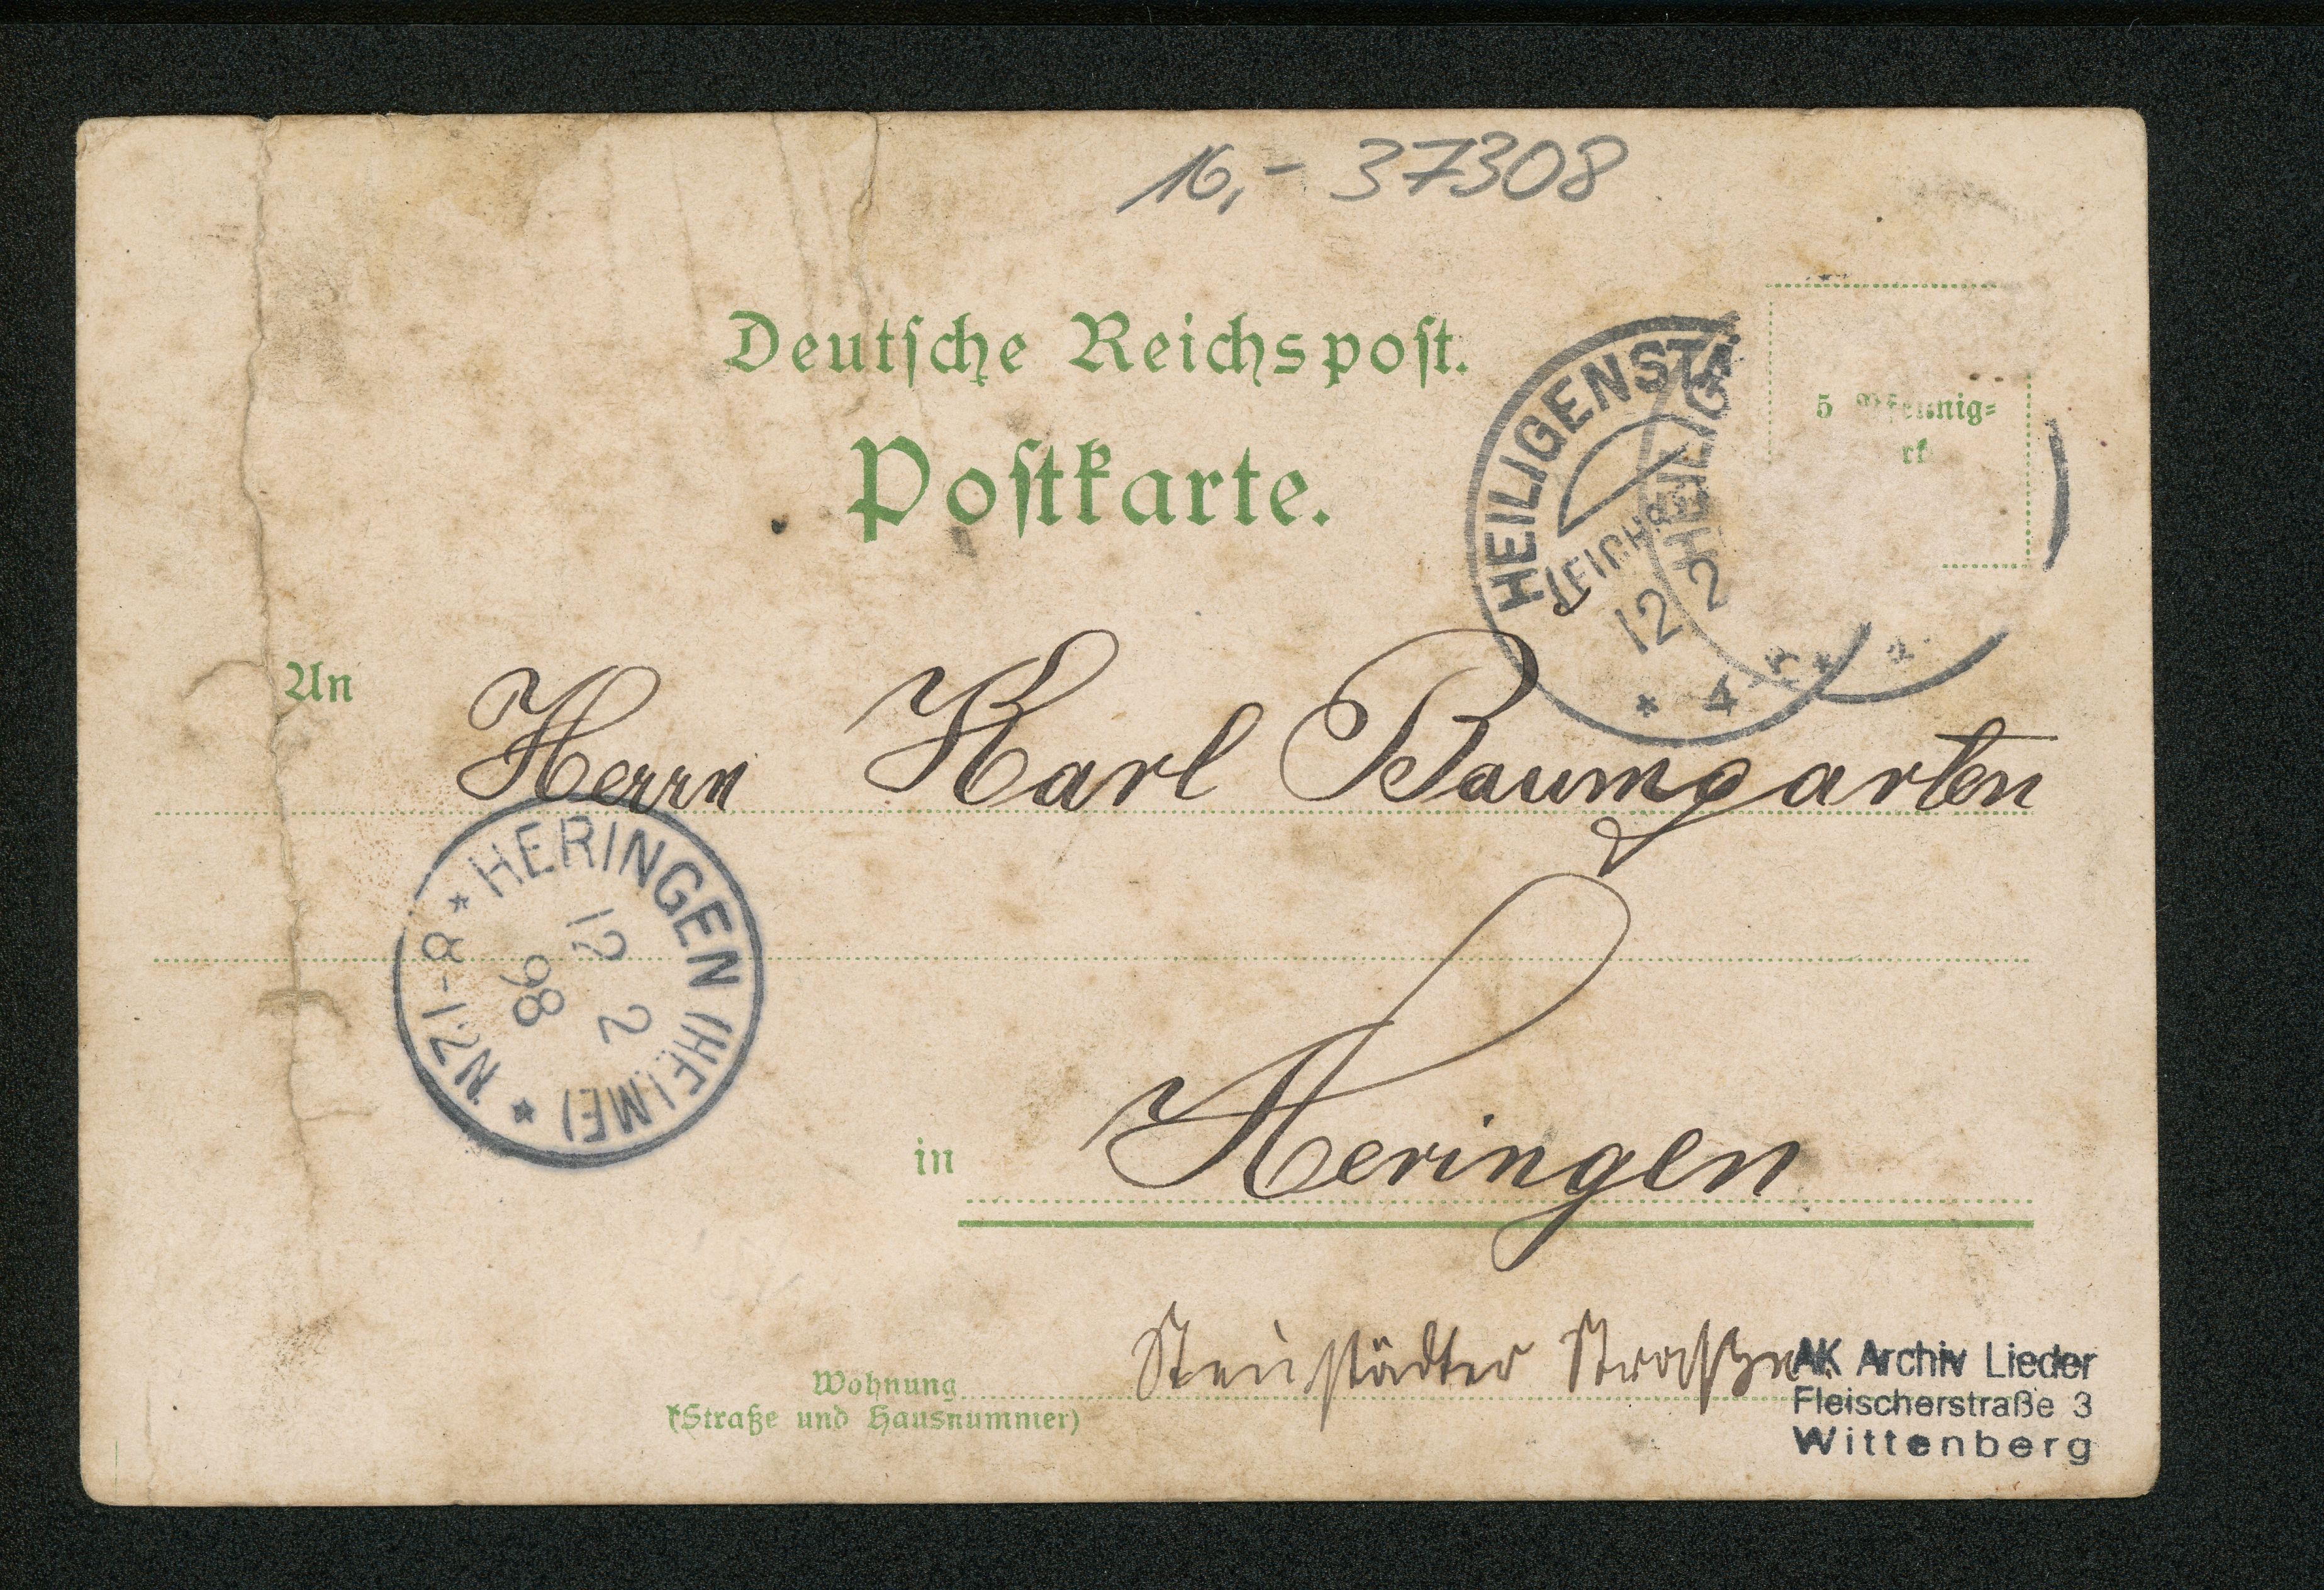 16,- 37308
Deutsche Reichspost.
Postkarte.
5 Pfennig-
rk
HEILIGENSTA
(EICHSF
12 2
* 4
HEILIG
An Herrn Karl Baumgarten
* HERINGEN (HELME) *
12 2
98
N7-8
in Heringen
Wohnung
(Straße und Hausnummer)
Straße
AK Archiv Lieder
Fleischerstraße 3
Wittenberg